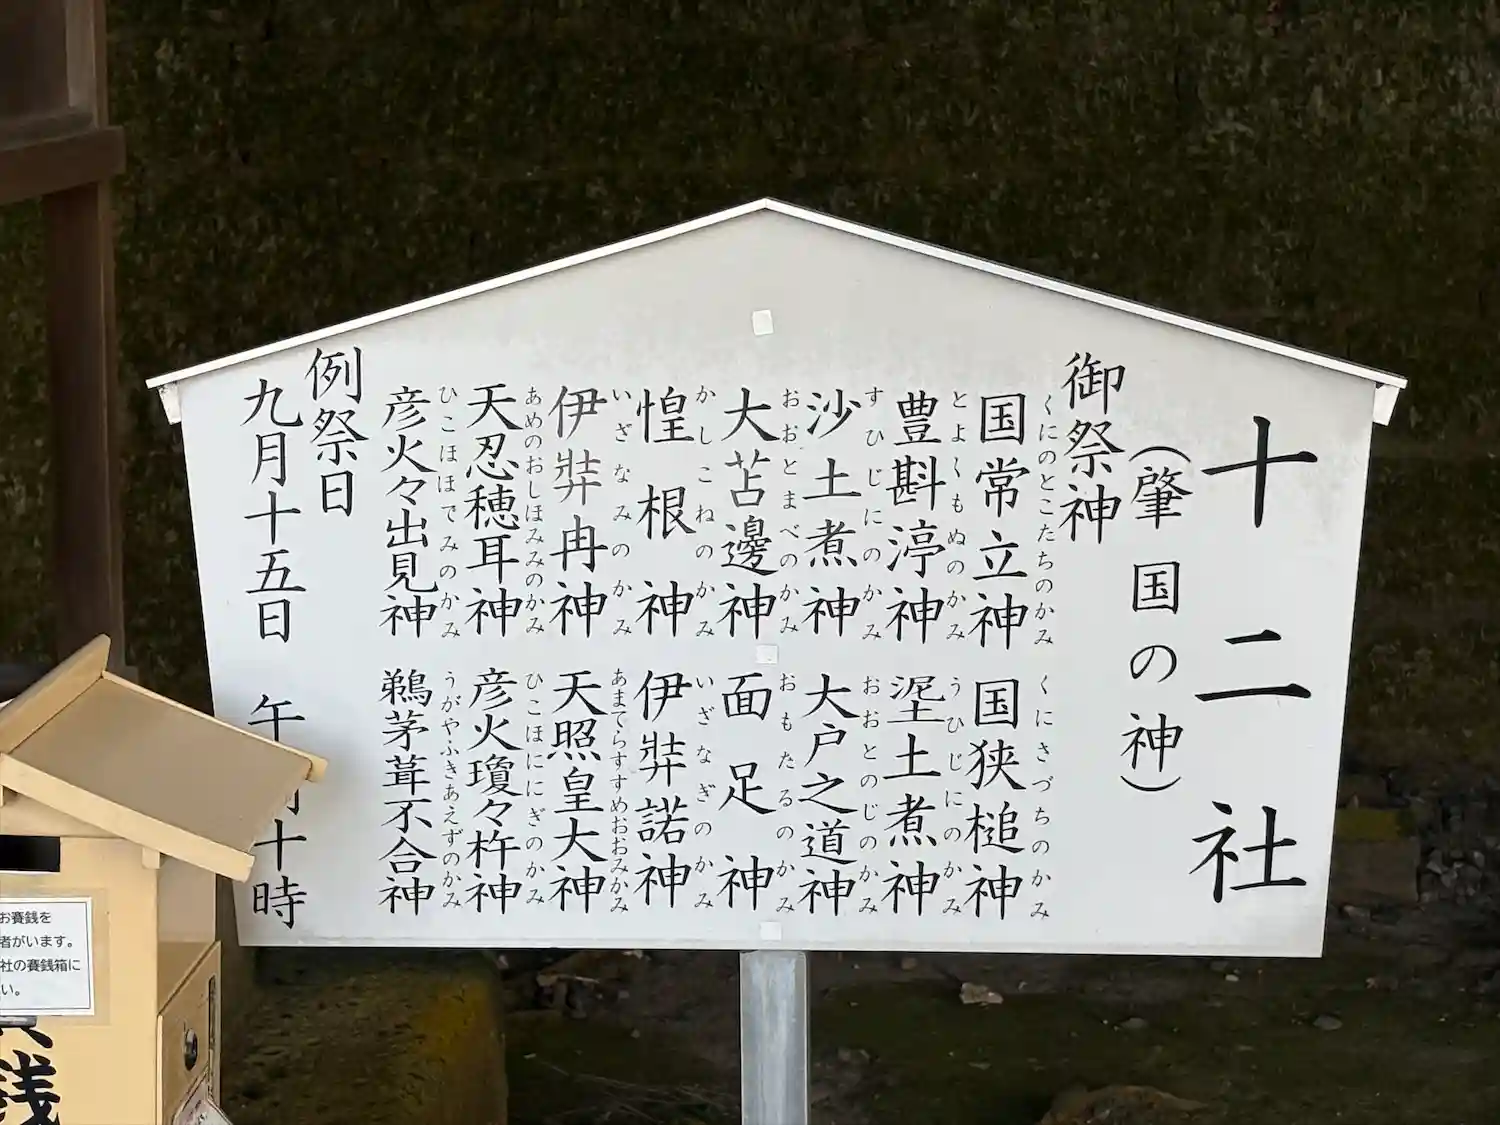 十二社
（肇国の神）
御祭神
国常立神 国狭槌神
くにのとこたちのかみ くにさづちのかみ
豊斟渟神 埿土煮神
とよくもぬのかみ うひじにのかみ
沙土煮神 大戸之道神
すひじにのかみ おおとのじのかみ
大苫邊神 面足神
おおとまべのかみ おもたるのかみ
惶根神 伊弉諾神
かしこねのかみ いざなぎのかみ
伊弉冉神 天照皇大神
いざなみのかみ あまてらすすめおおみかみ
天忍穂耳神 彦火瓊々杵神
あめのおしほみみのかみ ひこほににぎのかみ
彦火々出見神 鵜茅葺不合神
ひこほほでみのかみ うがやふきあえずのかみ
例祭日
九月十五日 午 十時
お賽銭を
者がいます。
社の賽銭箱に
い。
銭